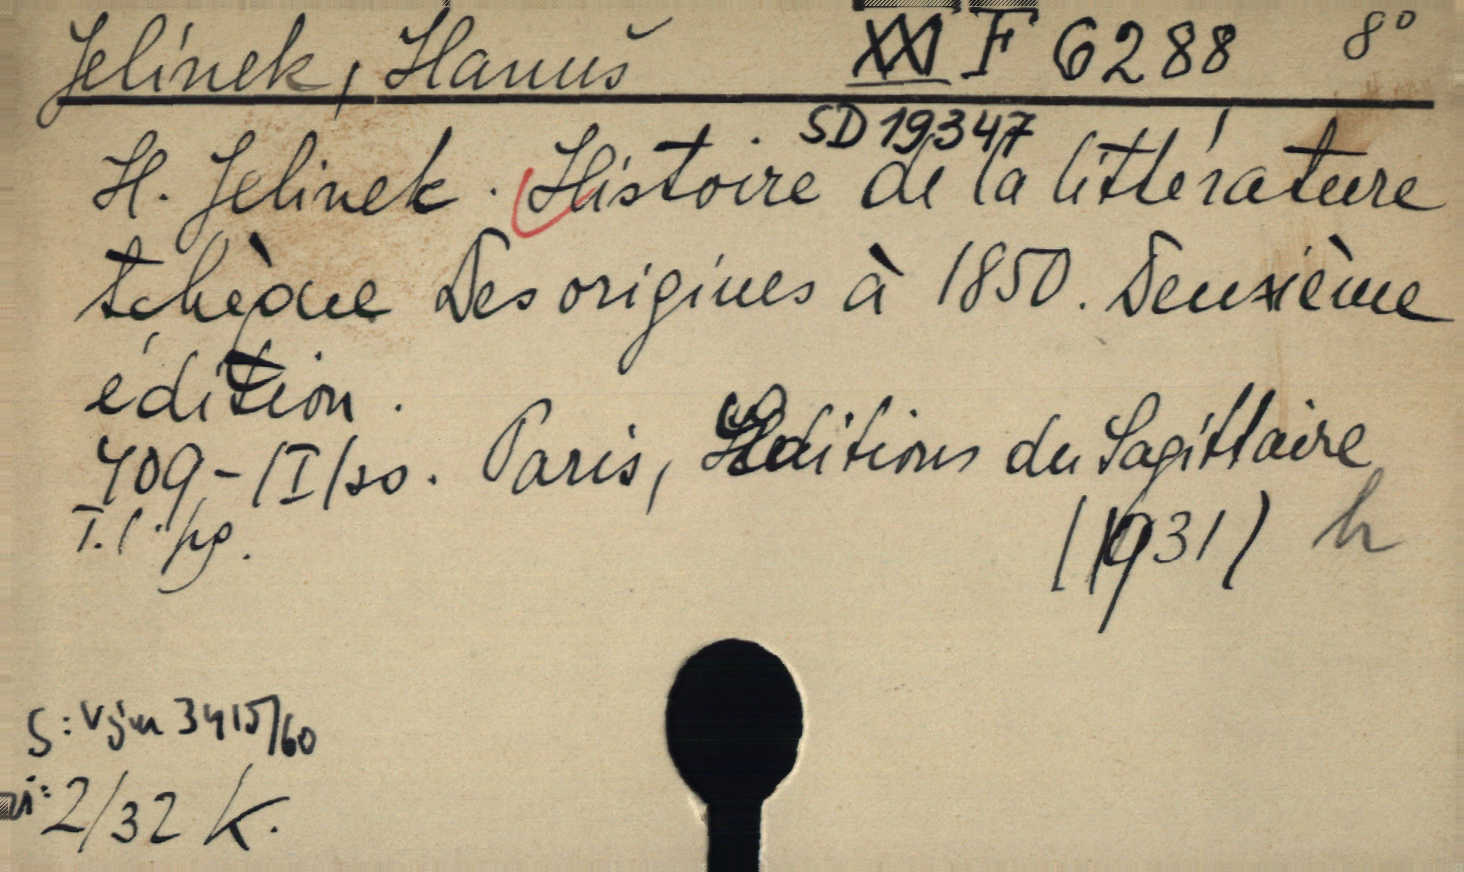 Jelínek, Hanuš XXI F 6288 8°
SD 19347
H. Jelinek. Histoire de la littérature
tchèque Des origines à 1850. Deuxième
édition.
409-/I/so. Paris, Editions du Sagittaire
T. pg. (1931) h
S: Vým 3415/60
2/32 K.